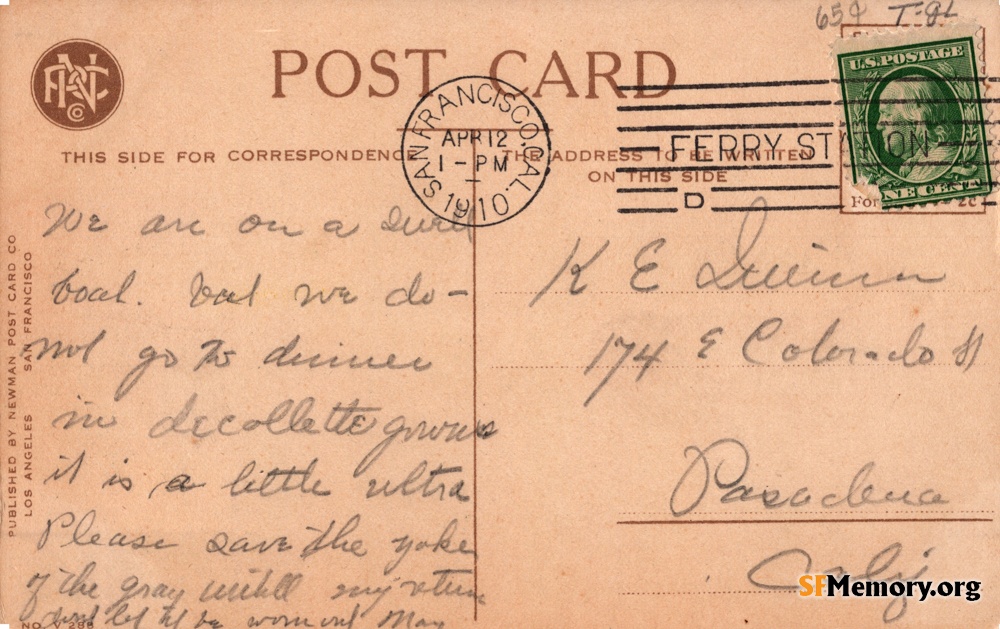 65¢ T-8L
POST CARD
U.S. POSTAGE
ONE CENT
SAN FRANCISCO, CAL.
APR 12
1 - PM
1910
FERRY STATION
D
THIS SIDE FOR CORRESPONDENCE
THE ADDRESS TO BE WRITTEN
ON THIS SIDE
For 2c
PUBLISHED BY NEWMAN POST CARD CO.
LOS ANGELES SAN FRANCISCO
We are on a
boat. but we do-
not go to dinner
in decollette gowns
it is a little ultra
Please save the yoke
of the gray until my return
dont let it be worn out May
NO. V 288
K E
174 E Colorado St
Pasadena
Calif
SFMemory.org